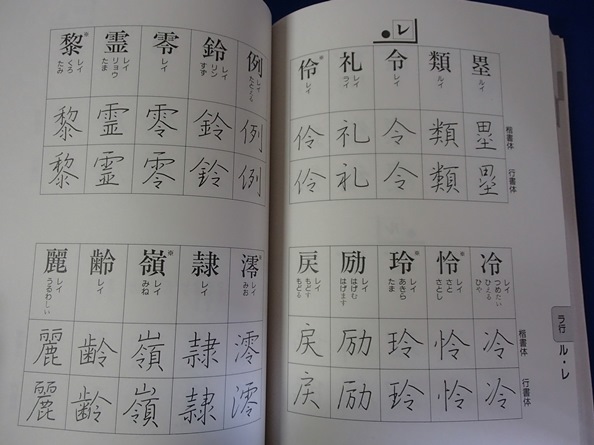 レ
楷書体 行書体
塁 ルイ 塁 塁
類 ルイ 類 類
令 レイ 令 令
礼 レイ ライ 礼 礼
伶※ レイ 伶 伶
楷書体 行書体
冷 レイ つめたい ひえる ひや 冷 冷
怜※ レイ さと さとし 怜 怜
玲※ レイ あきら たま 玲 玲
励 レイ はげむ はげます 励 励
戻 レイ もどす もどる 戻 戻
ラ行 ル・レ
例 レイ たとえる 例 例
鈴 レイ リン すず 鈴 鈴
零 レイ 零 零
霊 レイ リョウ たま 霊 霊
黎※ レイ くろ たみ 黎 黎
澪※ レイ みお 澪 澪
隷 レイ 隷 隷
嶺※ レイ みね 嶺 嶺
齢 レイ 齢 齢
麗 レイ うるわしい 麗 麗